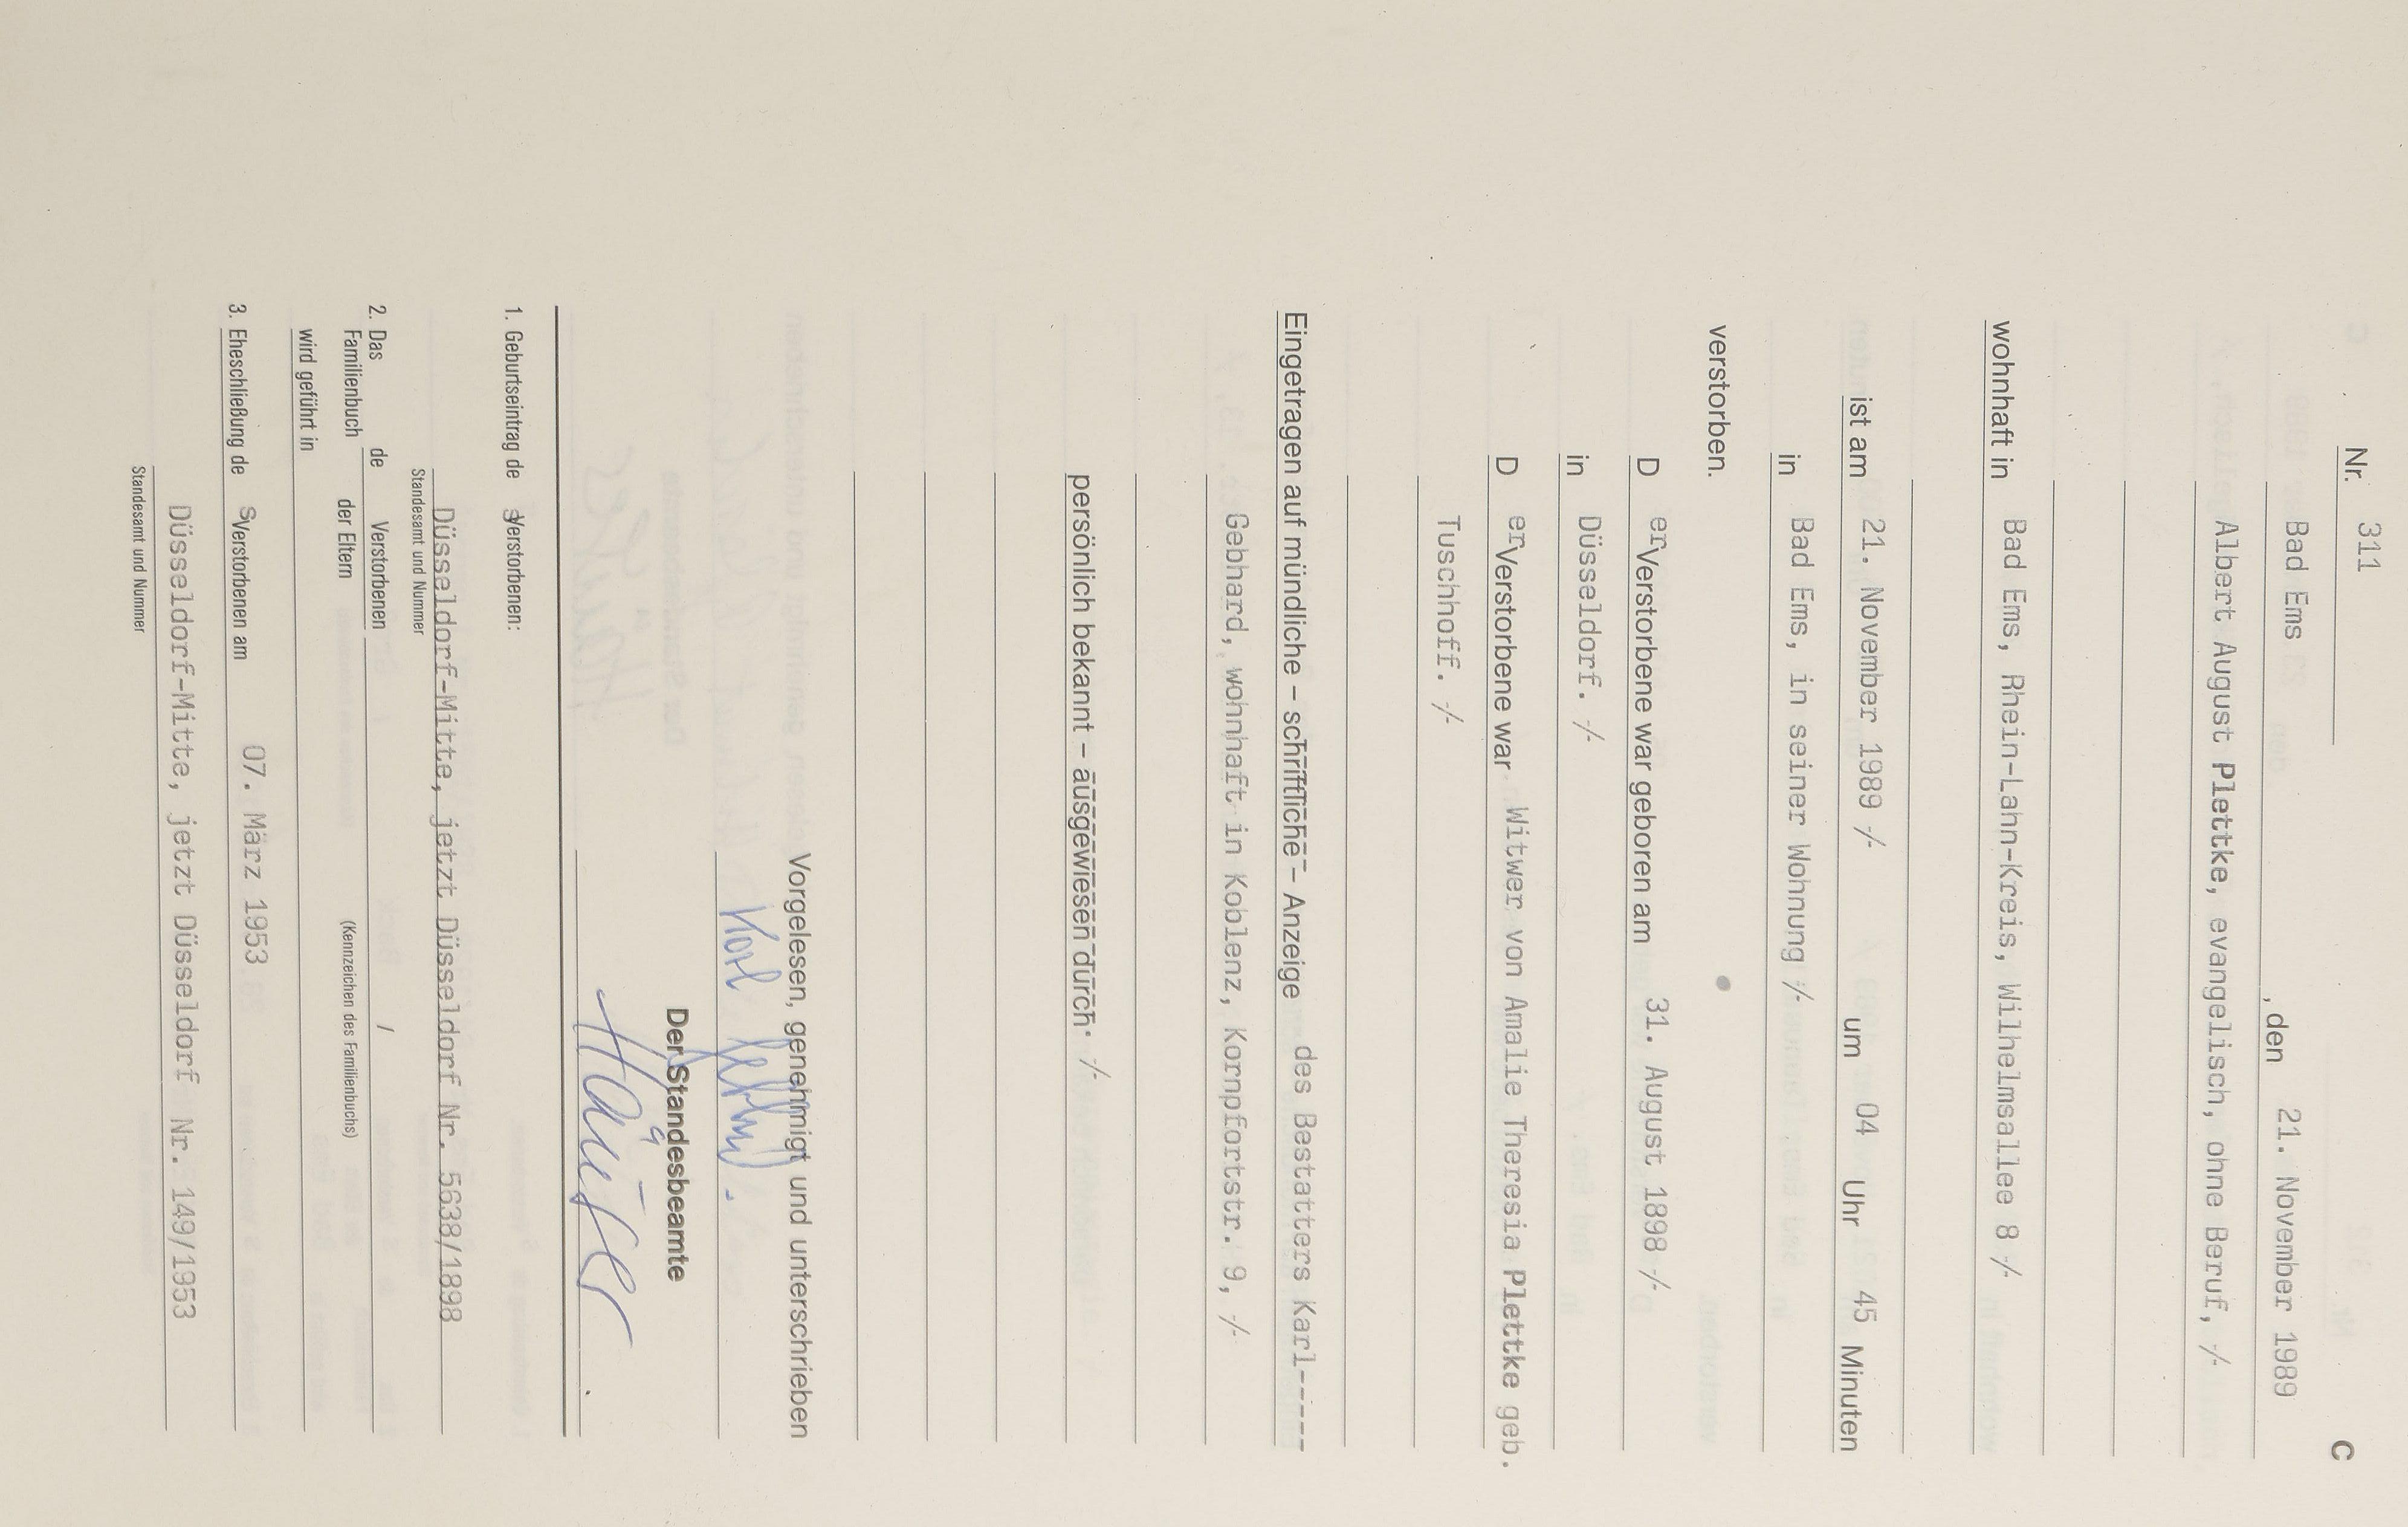 C
Nr. 311
Bad Ems, den 21. November 1989
Albert August Plettke, evangelisch, ohne Beruf, -/-
wohnhaft in Bad Ems, Rhein-Lahn-Kreis, Wilhelmsallee 8 -/-
ist am 21. November 1989 -/- um 04 Uhr 45 Minuten
in Bad Ems, in seiner Wohnung -/-
verstorben.
D er Verstorbene war geboren am 31. August 1898 -/-
in Düsseldorf. -/-
D er Verstorbene war Witwer von Amalie Theresia Plettke geb.
Tuschhoff. -/-
Eingetragen auf mündliche – schriftliche – Anzeige des Bestatters Karl-----
Gebhard, wohnhaft in Koblenz, Kornpfortstr. 9, -/-
persönlich bekannt – ausgewiesen durch. -/-
Vorgelesen, genehmigt und unterschrieben
Karl
Der Standesbeamte
1. Geburtseintrag de s Verstorbenen:
Düsseldorf-Mitte, jetzt Düsseldorf Nr. 5638/1898
Standesamt und Nummer
2. Das Familienbuch de Verstorbenen / der Eltern
(Kennzeichen des Familienbuchs)
wird geführt in
3. Eheschließung de s Verstorbenen am 07. März 1953
Düsseldorf-Mitte, jetzt Düsseldorf Nr. 149/1953
Standesamt und Nummer